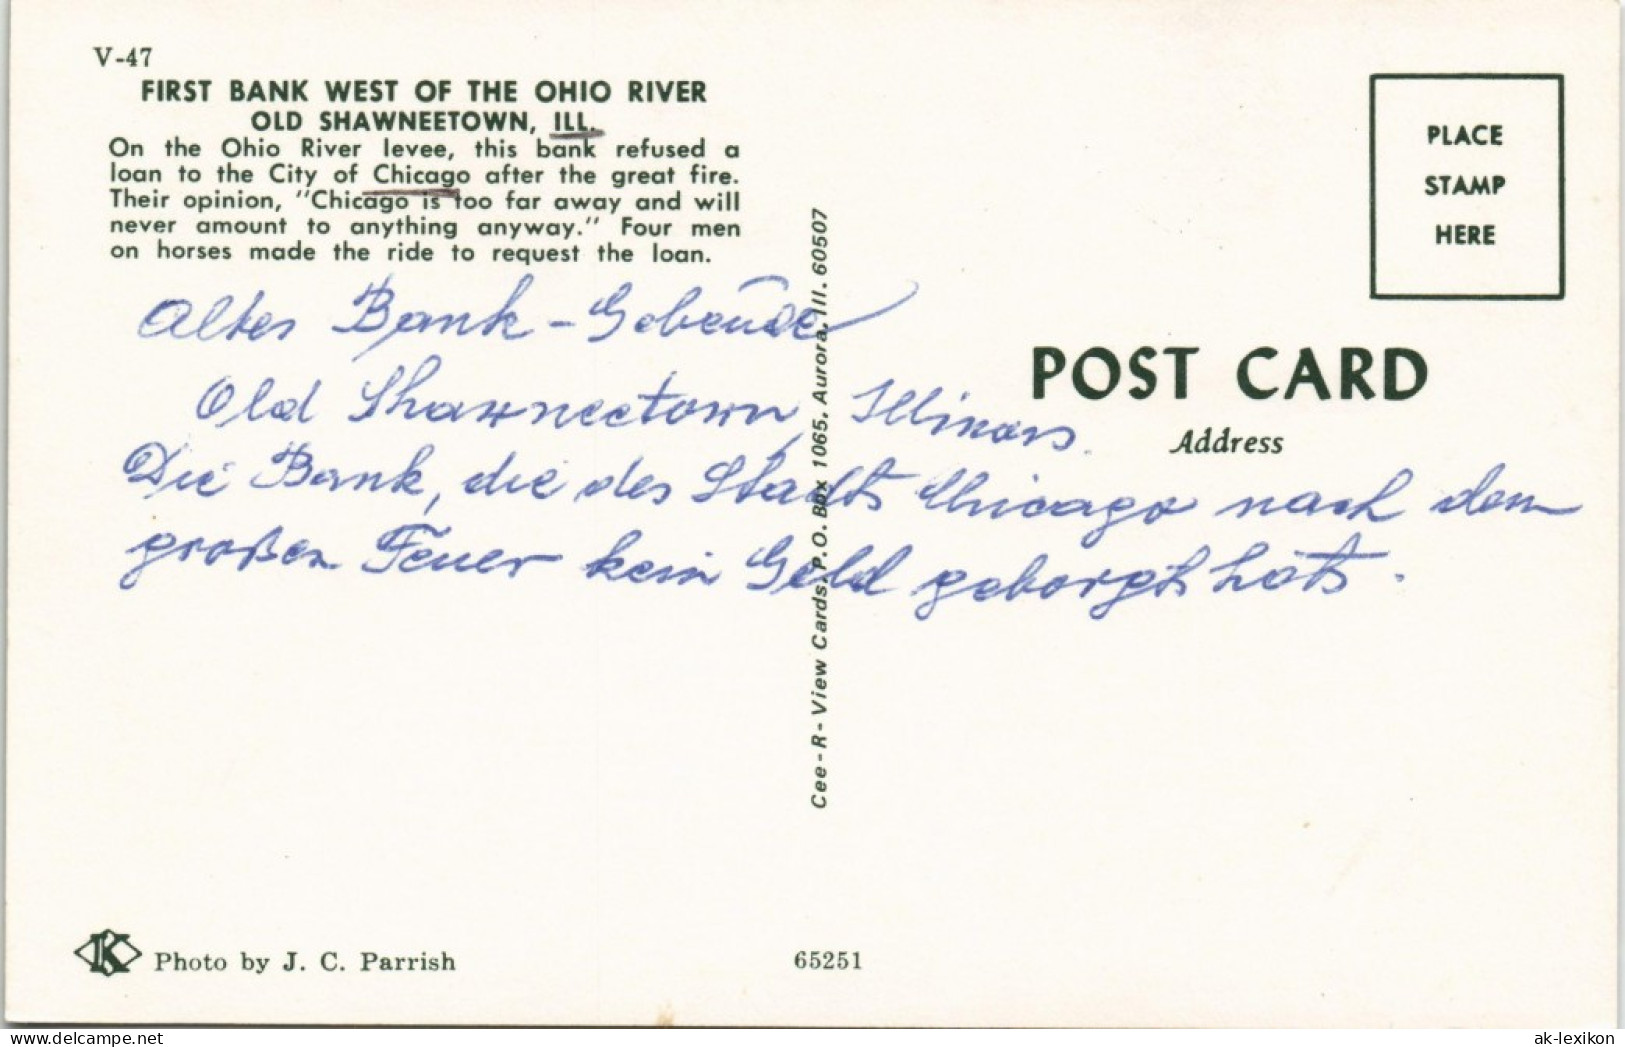 V-47
FIRST BANK WEST OF THE OHIO RIVER
OLD SHAWNEETOWN, ILL.
On the Ohio River levee, this bank refused a
loan to the City of Chicago after the great fire.
Their opinion, "Chicago is too far away and will
never amount to anything anyway." Four men
on horses made the ride to request the loan.
PLACE
STAMP
HERE
Altes Bank-Gebäude
Old Shawneetown, Illinois.
Die Bank, die des Stadts Chicago nach dem
großen Feuer kein Geld geborgt hats.
POST CARD
Address
Cee-R-View Cards, P.O. Box 1065, Aurora, Ill. 60507
K Photo by J. C. Parrish
65251
www.delcampe.net
ak-lexikon